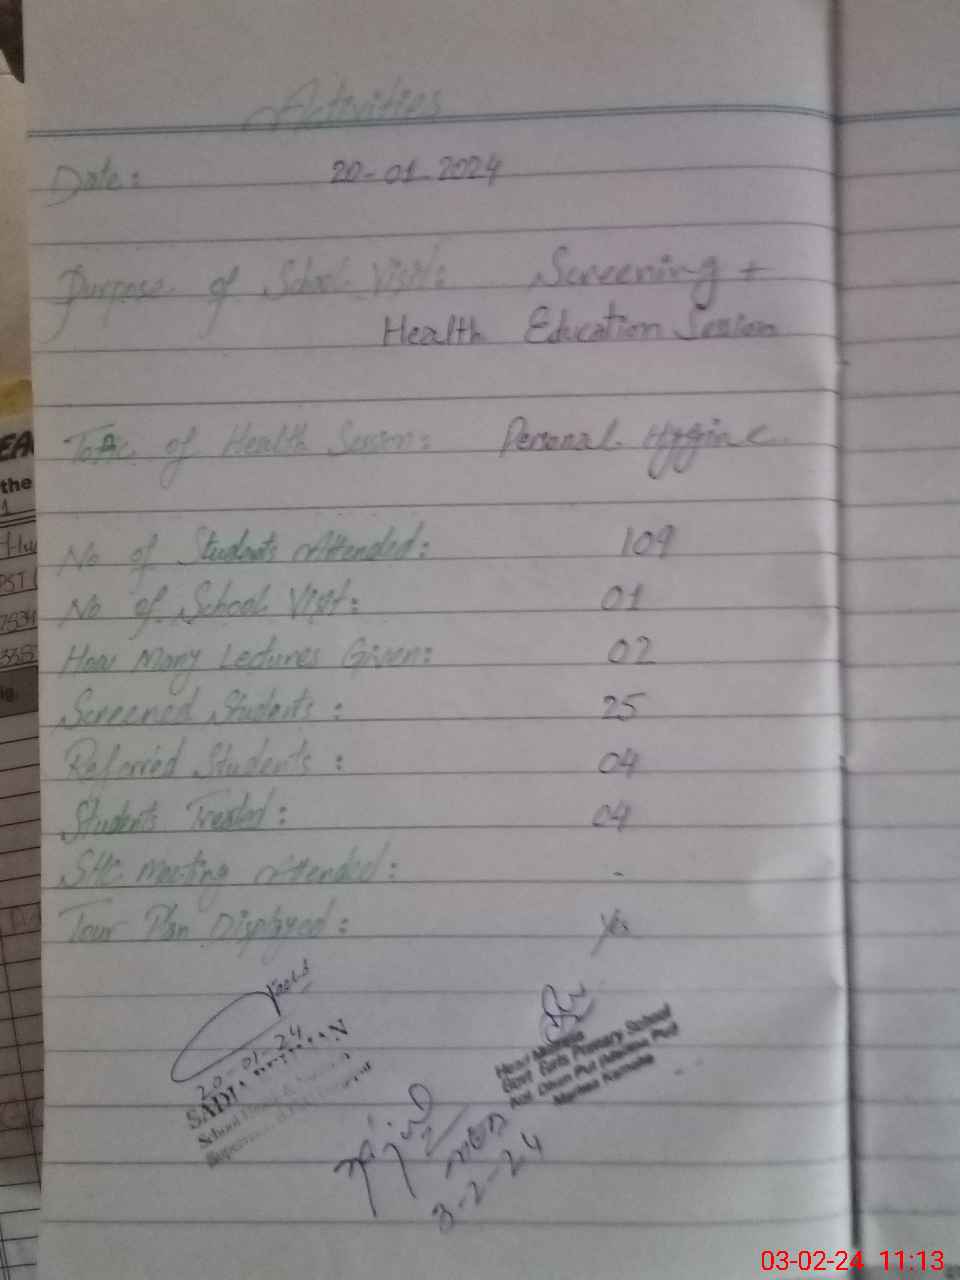 Activities
Date: 20-01-2024
Purpose of School Visit: Screening +
Health Education Session
Topic of Health Session: Personal Hygine
No of Students Attended: 109
No of School Visit: 01
How Many Lectures Given: 02
Screened Students: 25
Referred Students: 04
Students Treated: 04
SHC Meeting Attended: -
Tour Plan Displayed: Yes
20-01-24
SADIA
School
Head Mistress
Govt Girls Primary School
3-2-24
03-02-24 11:13
EA
the
1